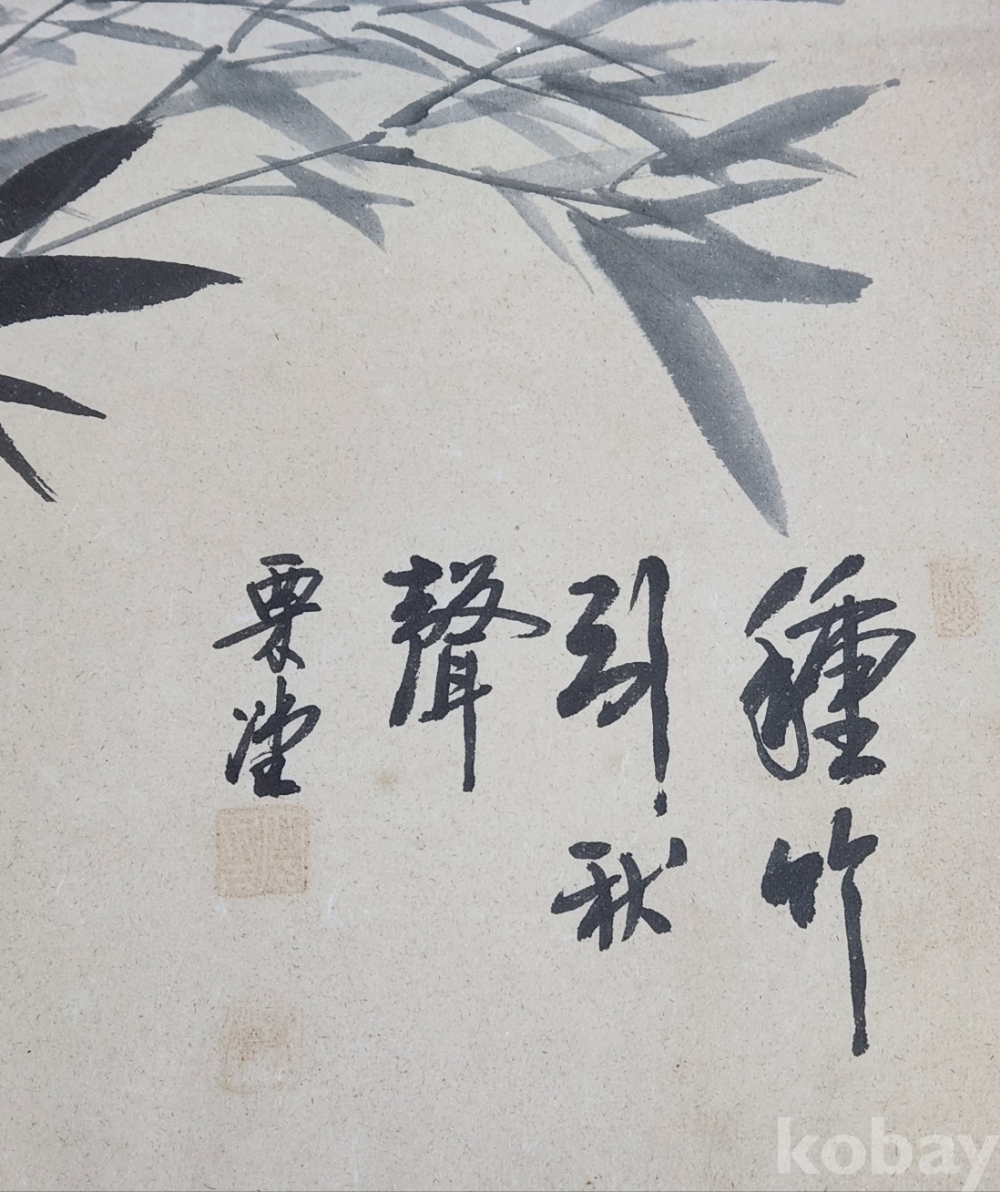 種竹
引秋
聲
栗堂
kobay